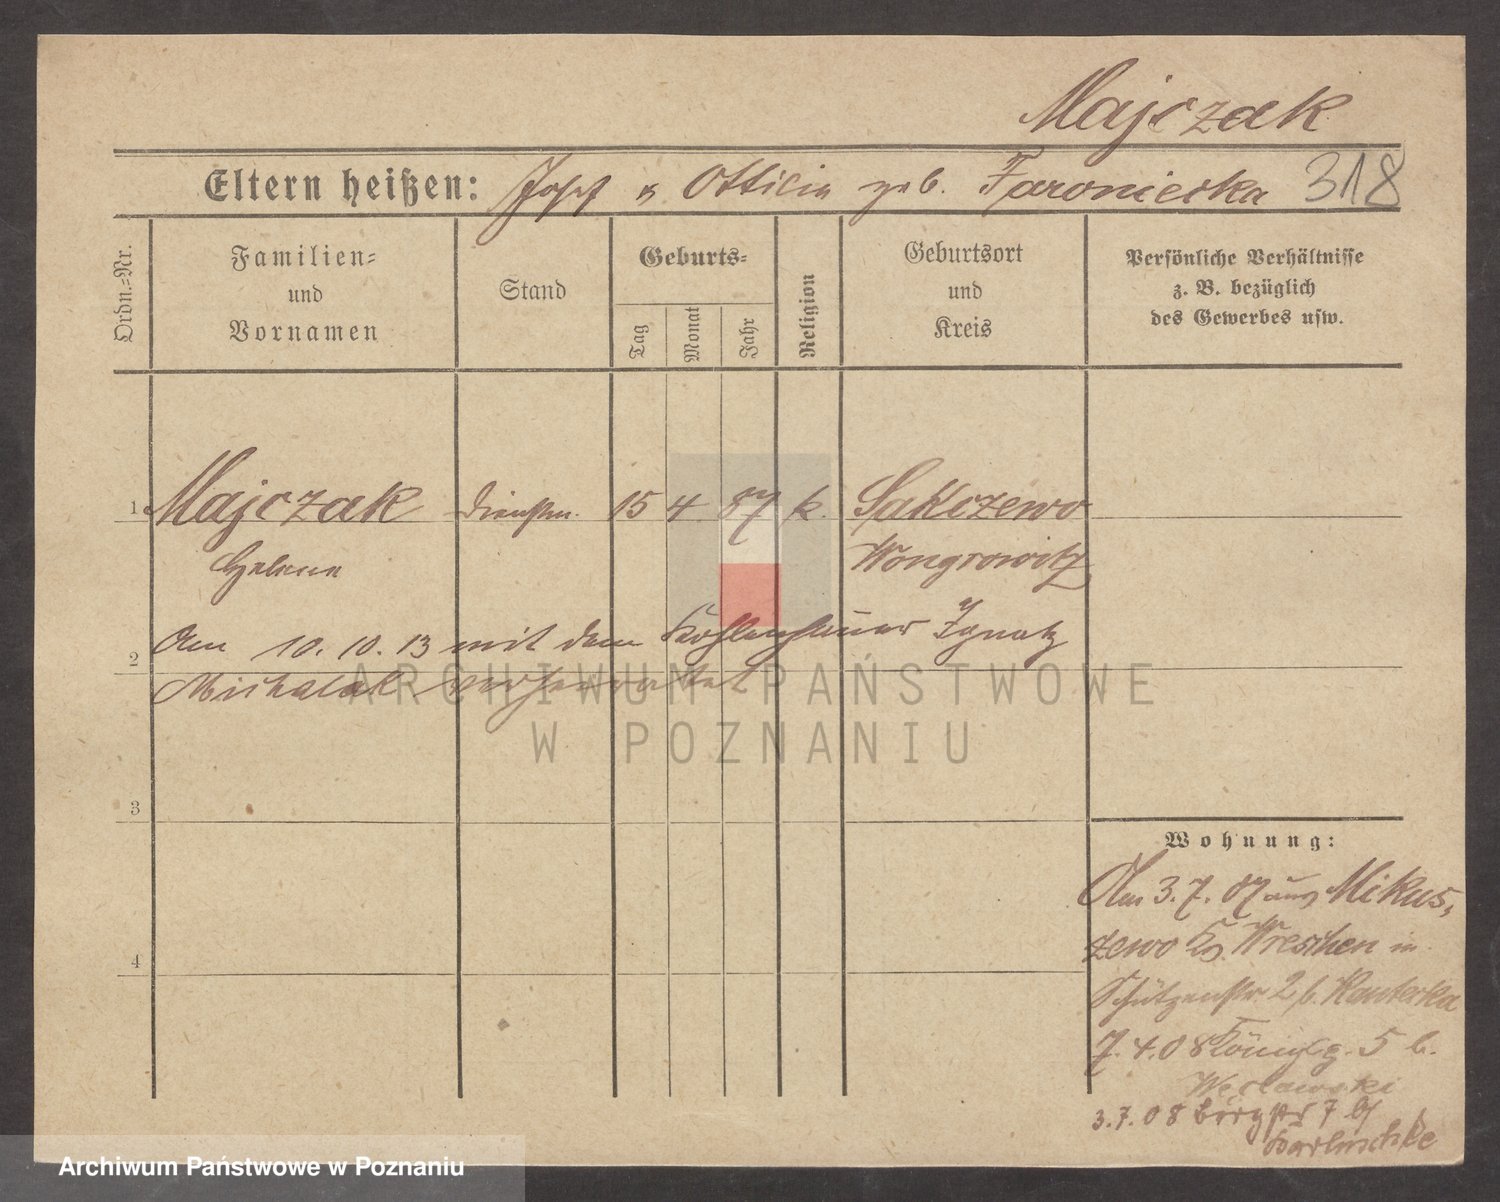 Majczak
Eltern heißen: Josef u Ottilia geb. Faroniecka 318
Ordn.-Nr.
Familien-
und
Vornamen
Stand
Geburts-
Tag
Monat
Jahr
Religion
Geburtsort
und
Kreis
Persönliche Verhältnisse
z. B. bezüglich
des Gewerbes usw.
1 Majczak Dienstm. 15 4 87 k. Sakczewo
Helene Wongrowitz
Am 10. 10. 13 mit dem Ignatz
2
Michalak verheiratet
3
4
Wohnung:
Am 3. 7. 07 aus Mikus-
zewo Ks. Wreschen in
Schützenstr. 2 b. Kanterka
7. 4. 08 Königspl. 5 b.
Węclawski
3. 7. 08 Bergstr 7 b/
ARCHIWUM PAŃSTWOWE
W POZNANIU
Archiwum Państwowe w Poznaniu